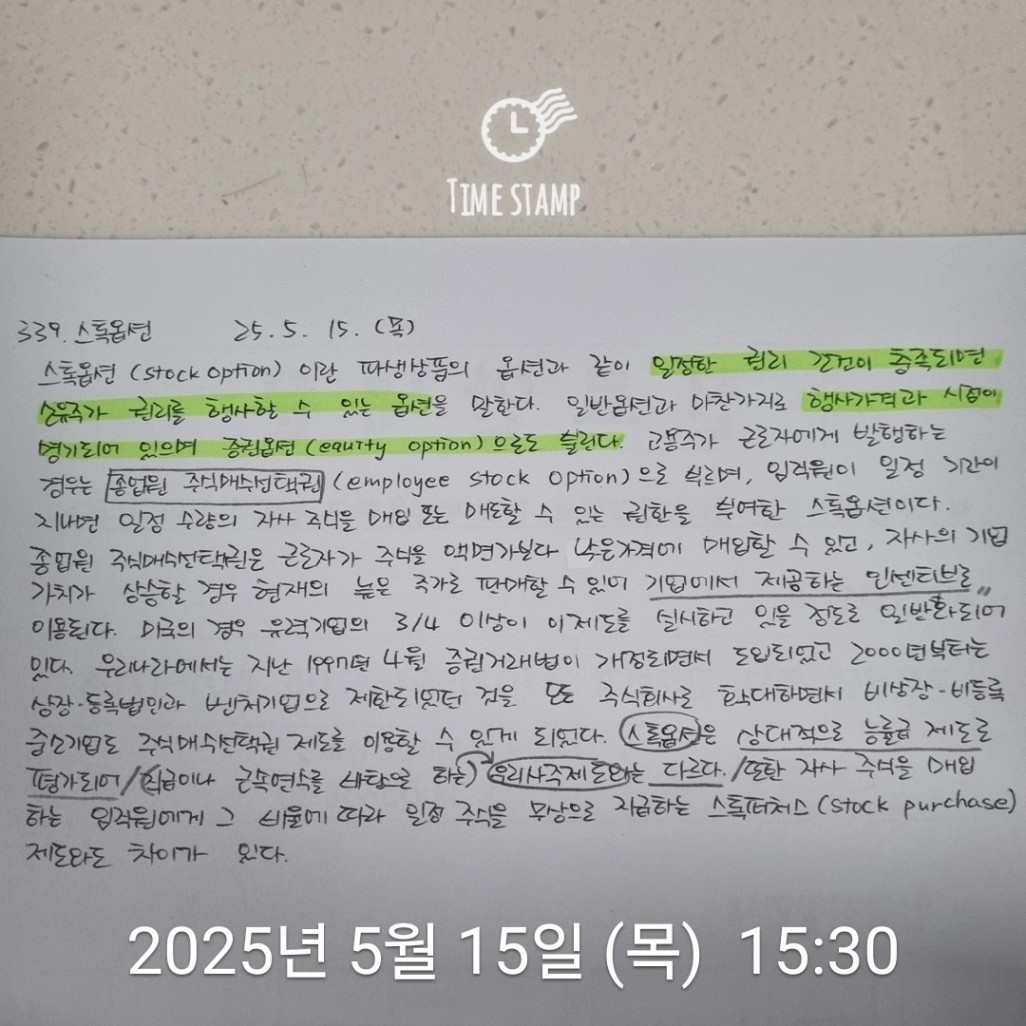 TIME STAMP
339. 스톡옵션 25. 5. 15. (목)
스톡옵션 (stock option) 이란 파생상품의 옵션과 같이 일정한 권리 조건이 충족되면
소유주가 권리를 행사할 수 있는 옵션을 말한다. 일반옵션과 마찬가지로 행사가격과 시점이
명기되어 있으며 증권옵션 (equity option) 으로도 불린다. 고용주가 근로자에게 발행하는
경우는 종업원 주식매수선택권 (employee stock option) 으로 부르며, 임직원이 일정 기간이
지나면 일정 수량의 자사 주식을 매입 또는 매도할 수 있는 권한을 부여한 스톡옵션이다.
종업원 주식매수선택권은 근로자가 주식을 액면가보다 낮은가격에 매입할 수 있고, 자사의 기업
가치가 상승할 경우 현재의 높은 주가로 판매할 수 있어 기업에서 제공하는 인센티브로
이용된다. 미국의 경우 유력기업의 3/4 이상이 이 제도를 실시하고 있을 정도로 일반화되어
있다. 우리나라에서는 지난 1997년 4월 증권거래법이 개정되면서 도입되었고 2000년부터는
상장·등록법인과 벤처기업으로 제한되었던 것을 또 주식회사로 확대하면서 비상장·비등록
중소기업도 주식매수선택권 제도를 이용할 수 있게 되었다. 스톡옵션은 상대적으로 능률급 제도로
평가되어/직급이나 근속연수를 바탕으로 하는) 우리사주제도와는 다르다./또한 자사 주식을 매입
하는 임직원에게 그 비율에 따라 일정 주식을 무상으로 지급하는 스톡퍼처스 (stock purchase)
제도와도 차이가 있다.
2025년 5월 15일 (목) 15:30